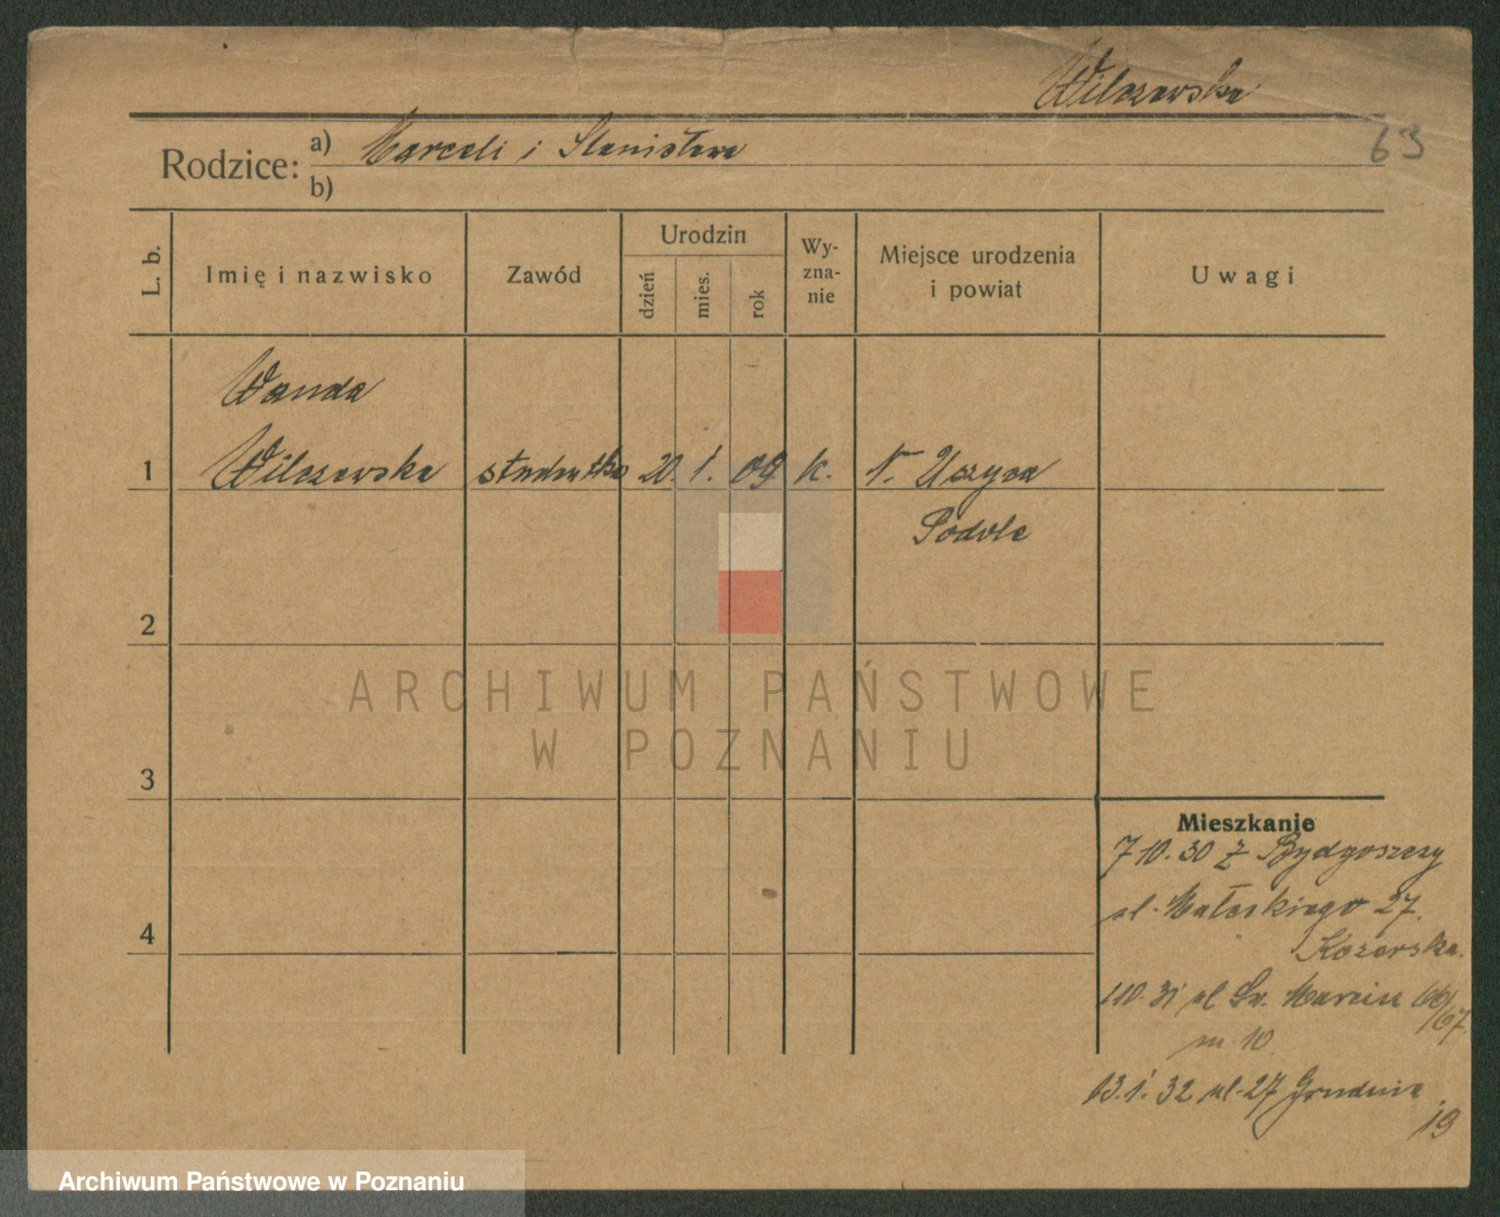 Wilczewska
63
Rodzice: a) Marceli i Stanisława
b)
L. b.
Imię i nazwisko
Zawód
Urodzin
dzień
mies.
rok
Wy-
zna-
nie
Miejsce urodzenia
i powiat
Uwagi
Wanda
1 Wilczewska studentka 20. 1. 09 k. N. Uszyca
Podole
2
3
4
Mieszkanie
7 10. 30 z Bydgoszczy
ul. Małeckiego 27.
110. 31 ul Św. Marcin 66/67.
m 10
13. 1. 32 ul. 27 Grudnia
19
ARCHIWUM PAŃSTWOWE
W POZNANIU
Archiwum Państwowe w Poznaniu